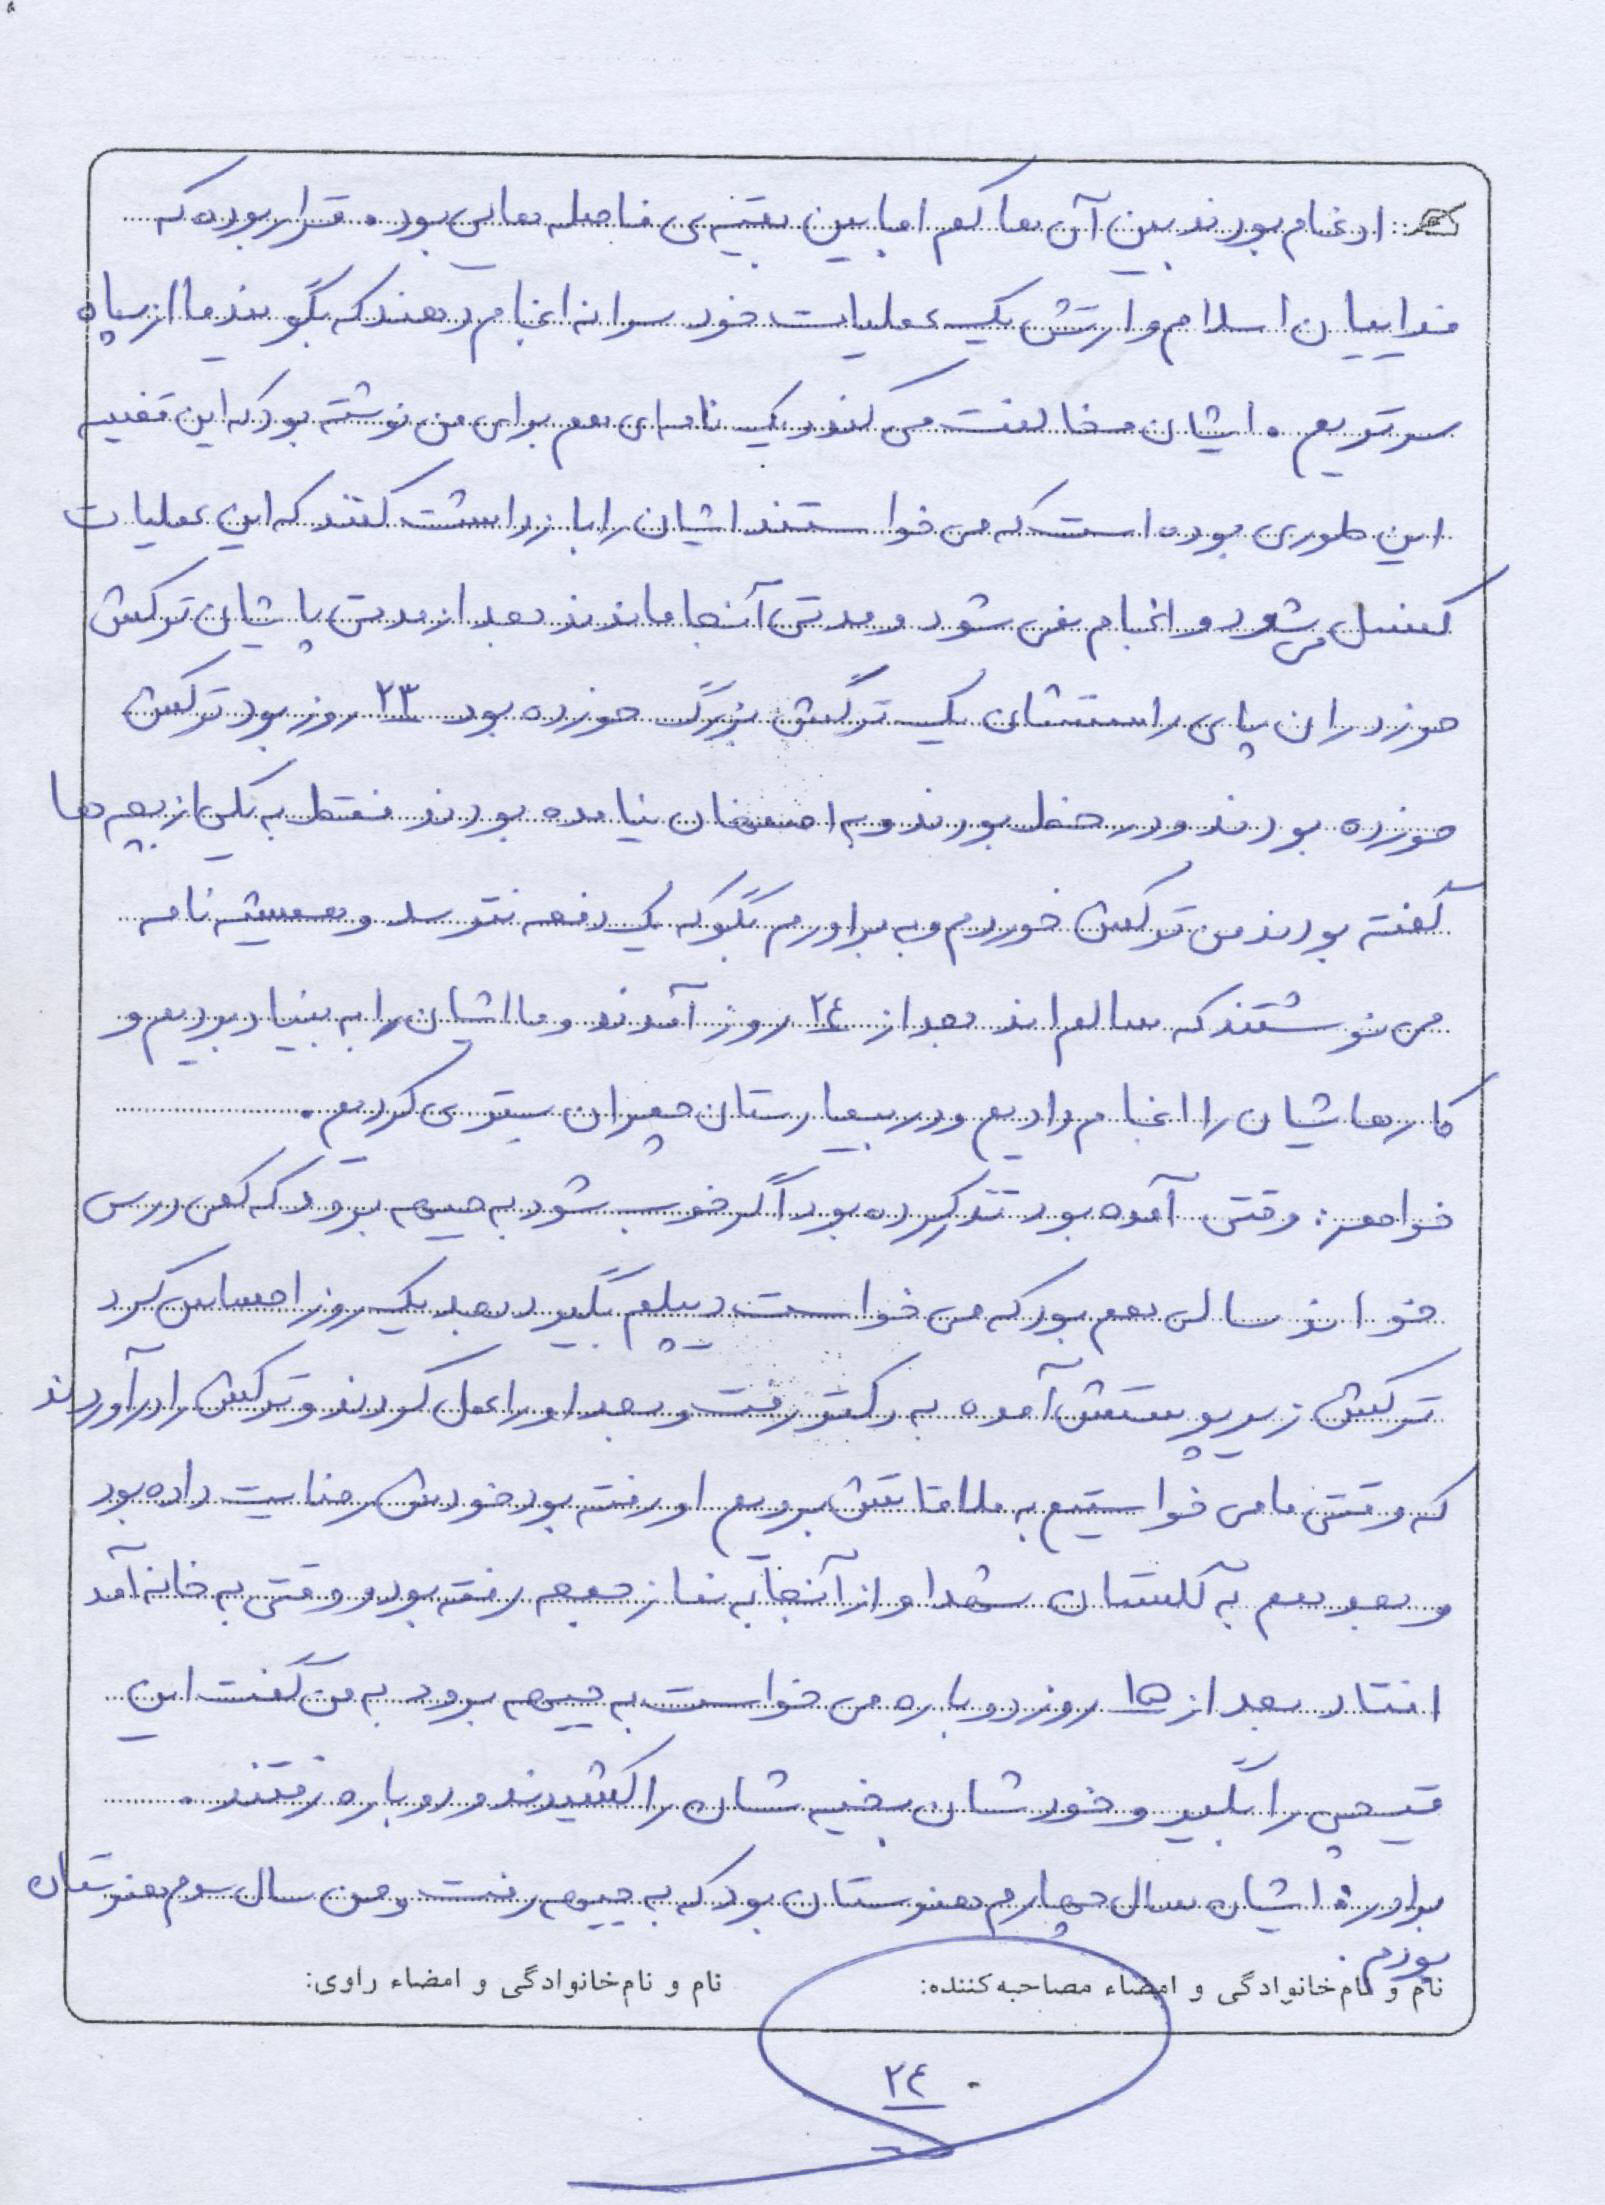 ادغام بودند بین آن ها کم اما بین بقیه ی فاصله هایی بود . قرار بوده که
فداییان اسلام و ارتش یک عملیات خود سرانه انجام دهند که بگویند ما از سپاه
سر تریم . ایشان مخالفت می کند و یک نامه ای هم برای من نوشته بود که این قضیه
این طوری بوده است که می خواستند ایشان را بازداشت کنند که این عملیات
کنسل می شود و انجام نمی شود و مدتی آنجا ماندند بعد از مدتی پاشان ترکش
خورد ران پای راستشان یک ترکش بزرگ خورده بود ۲۳ روز بود ترکش
خورده بودند و در خط بودند و به اصفهان نیامده بودند فقط به یکی از بچه ها
گفته بودند من ترکش خوردم و به برادرم بگو که یک دفعه نترسد و همیشه نامه
می نوشتند که سالم اند بعد از ۲۴ روز آمدند و ما ایشان را به بنیاد بردیم و
کارهاشان را انجام دادیم و در بیمارستان چمران بستری کردیم .
خواهر: وقتی آمده بود نذر کرده بود اگر خوب شود به جبهه برود که کمی درس
خواند سالی هم بود که می خواست دیپلم بگیرد بعد یک روز احساس کرد
ترکش زیر پوستش آمده به دکتر رفت و بعد او را عمل کردند و ترکش را درآوردند
که وقتی ما می خواستیم به ملاقاتش برویم او رفته بود خودش رضایت داده بود
و بعد هم به گلستان شهدا و از آنجا به نماز جمعه رفته بود و وقتی به خانه آمد
افتاد بعد از ۱۵ روز دوباره می خواست به جبهه برود به من گفت این
قیچی را بگیر و خودشان بخیه شان را کشیدند و دوباره رفتند .
برادر: ایشان سال چهارم هنرستان بود که به جبهه رفت و من سال سوم هنرستان
بودم .
نام و نام خانوادگی و امضاء مصاحبه کننده: نام و نام خانوادگی و امضاء راوی:
۲۴